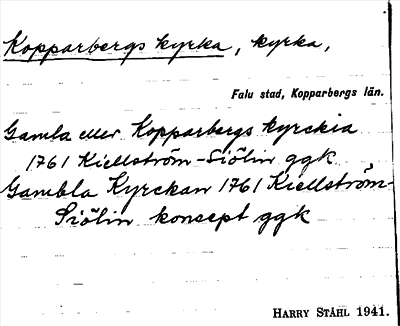 Kopparbergs kyrka, kyrka,
Falu stad, Kopparbergs län.
Gamla eller Kopparbergs kyrckia
1761 Kiellström-Siölin ggk
Gambla Kyrckan 1761 Kiellström-
Siölin koncept ggk
HARRY STÅHL 1941.